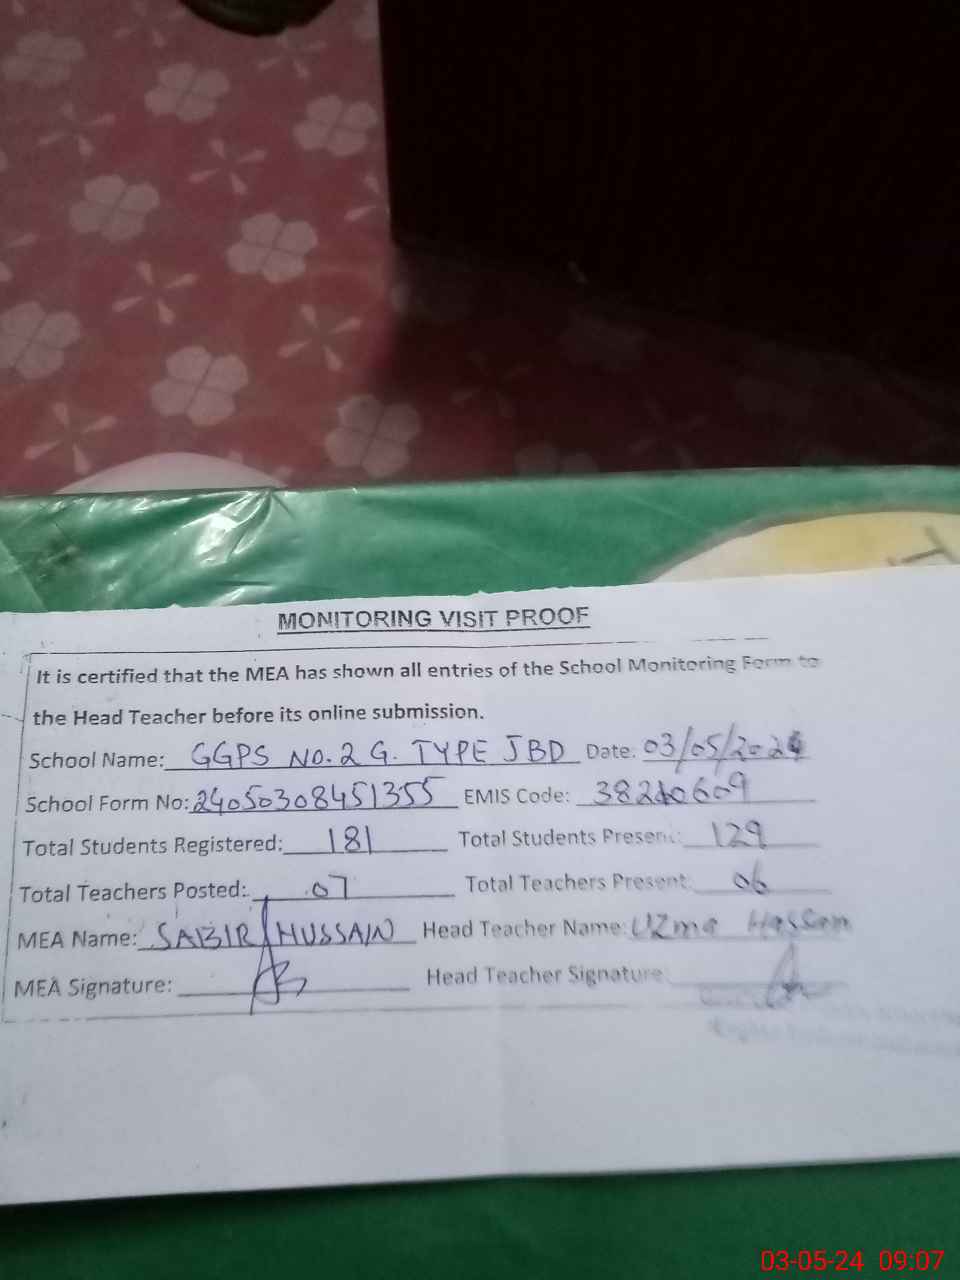 MONITORING VISIT PROOF
It is certified that the MEA has shown all entries of the School Monitoring Form to
the Head Teacher before its online submission.
School Name: GGPS NO. 2 G. TYPE JBD Date: 03/05/2024
School Form No: 24050308451355 EMIS Code: 38210609
Total Students Registered: 181 Total Students Present: 129
Total Teachers Posted: 07 Total Teachers Present: 06
MEA Name: SABIR HUSSAIN Head Teacher Name: Uzma Hassan
MEA Signature: Head Teacher Signature:
03-05-24 09:07